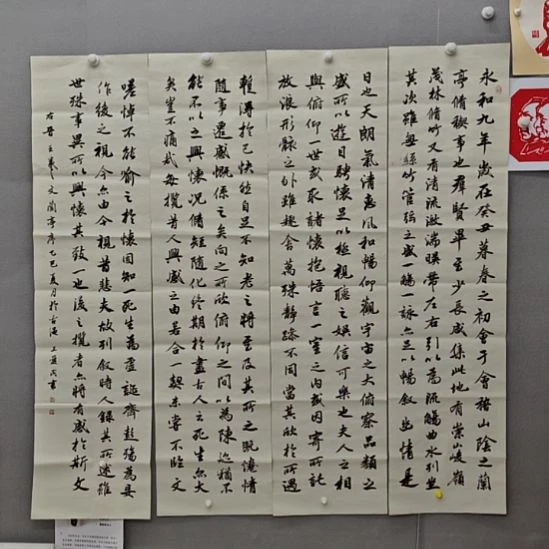 永和九年歲在癸丑暮春之初會于會稽山陰之蘭
亭脩稧事也群賢畢至少長咸集此地有崇山峻嶺
茂林脩竹又有清流激湍映帶左右引以為流觴曲水列坐
其次雖無絲竹管弦之盛一觴一詠亦足以暢叙幽情是
日也天朗氣清惠風和暢仰觀宇宙之大俯察品類之
盛所以遊目騁懷足以極視聽之娛信可樂也夫人之相
與俯仰一世或取諸懷抱悟言一室之內或因寄所託
放浪形骸之外雖趣舍萬殊靜躁不同當其欣於所遇
暫得於己快然自足不知老之將至及其所之既惓情
隨事遷感慨係之矣向之所欣俯仰之間以為陳迹猶不
能不以之興懷況脩短隨化終期於盡古人云死生亦大
矣豈不痛哉每攬昔人興感之由若合一契未嘗不臨文
嗟悼不能喻之於懷固知一死生為虛誕齊彭殤為妄
作後之視今亦由今視昔悲夫故列叙時人錄其所述雖
世殊事異所以興懷其致一也後之攬者亦將有感於斯文
右晉王羲之文蘭亭序乙巳夏月於